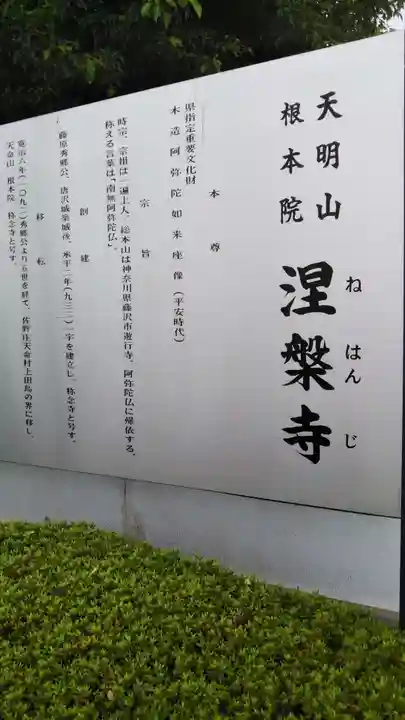 天明山
根本院
涅槃寺
ねはんじ
本尊
県指定重要文化財
木造阿弥陀如来座像(平安時代)
宗旨
時宗、宗祖は一遍上人、総本山は神奈川県藤沢市遊行寺。阿弥陀仏に帰依する。
称える言葉は「南無阿弥陀仏」。
創建
藤原秀郷公、唐沢城築城後、承平二年(九三二)一宇を建立し、称念寺と号す。
移転
寛治六年(一〇九二)秀郷公より七世を経て、佐野庄天命村上田島の界に移し、
天命山 根本院 称念寺と号す。